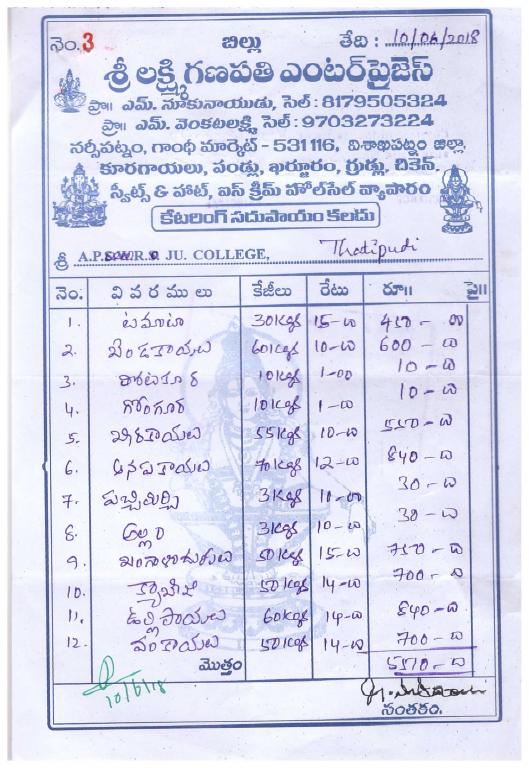 నెం. 3 బిల్లు తేది : 10/06/2018
శ్రీ లక్ష్మి గణపతి ఎంటర్‌ప్రైజెస్
ప్రొ॥ ఎమ్. నూకునాయుడు, సెల్ : 8179505324
ప్రొ॥ ఎమ్. వెంకటలక్ష్మి సెల్ : 9703273224
నర్సీపట్నం, గాంధీ మార్కెట్ - 531116, విశాఖపట్నం జిల్లా,
కూరగాయలు, పండ్లు, ఖర్జూరం, గ్రుడ్లు, చికెన్,
స్వీట్స్ & హాట్, ఐస్ క్రీమ్ హోల్‌సేల్ వ్యాపారం
కేటరింగ్ సదుపాయం కలదు
శ్రీ A.P.S.W.R.S. JU. COLLEGE, Thatipudi
నెం. వివరములు కేజీలు రేటు రూ॥ పై॥
1. టమాటా 30 kgs 15-00 450-00
2. బెండకాయలు 60 kgs 10-00 600-00
3. తోటకూర 10 kgs 1-00 10-00
4. గోంగూర 10 kgs 1-00 10-00
5. బీరకాయలు 55 kgs 10-00 550-00
6. ఆనపకాయలు 70 kgs 12-00 840-00
7. పచ్చిమిర్చి 3 kgs 10-00 30-00
8. అల్లం 3 kgs 10-00 30-00
9. బంగాళాదుంపలు 50 kgs 15-00 750-00
10. క్యాబేజి 50 kgs 14-00 700-00
11. ఉల్లిపాయలు 60 kgs 14-00 840-00
12. వంకాయలు 50 kgs 14-00 700-00
మొత్తం 5510-00
10/6/18
సంతకం.